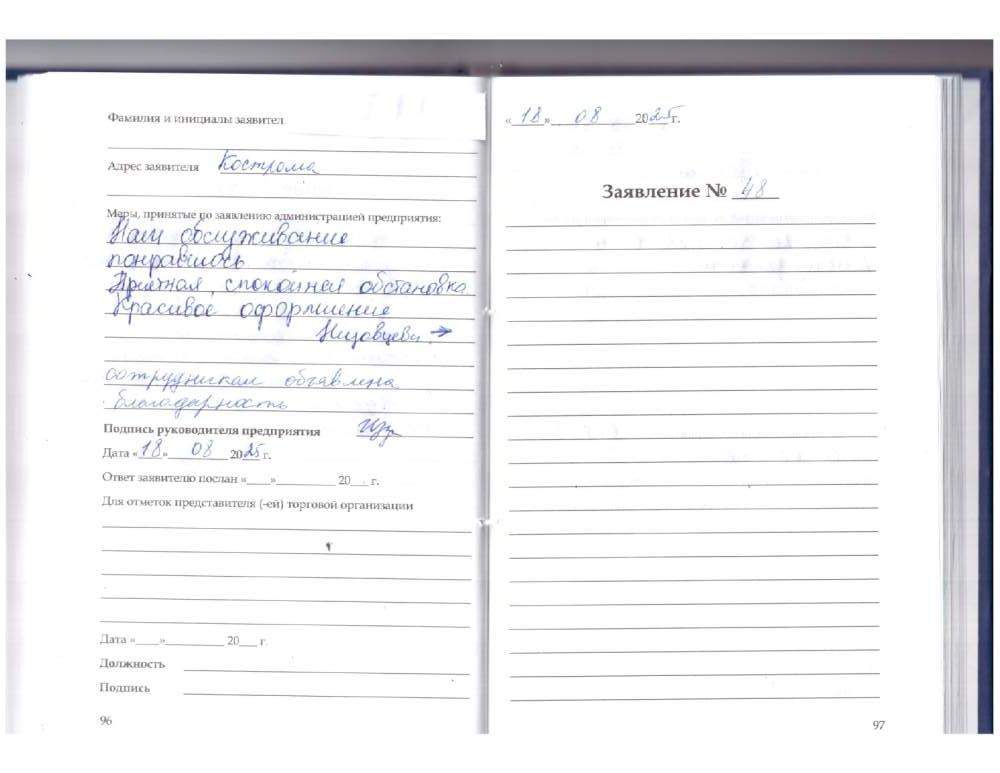 Фамилия и инициалы заявител
Адрес заявителя Кострома
Меры, принятые по заявлению администрацией предприятия:
Нам обслуживание
понравилось
Приятная, спокойная обстановка
Красивое оформление
сотрудникам объявлена
благодарность
Подпись руководителя предприятия
Дата «18» 08 2025 г.
Ответ заявителю послан «____»__________ 20___ г.
Для отметок представителя (-ей) торговой организации
Дата «____»__________ 20___ г.
Должность
Подпись
96
«18» 08 2025 г.
Заявление № 48
97